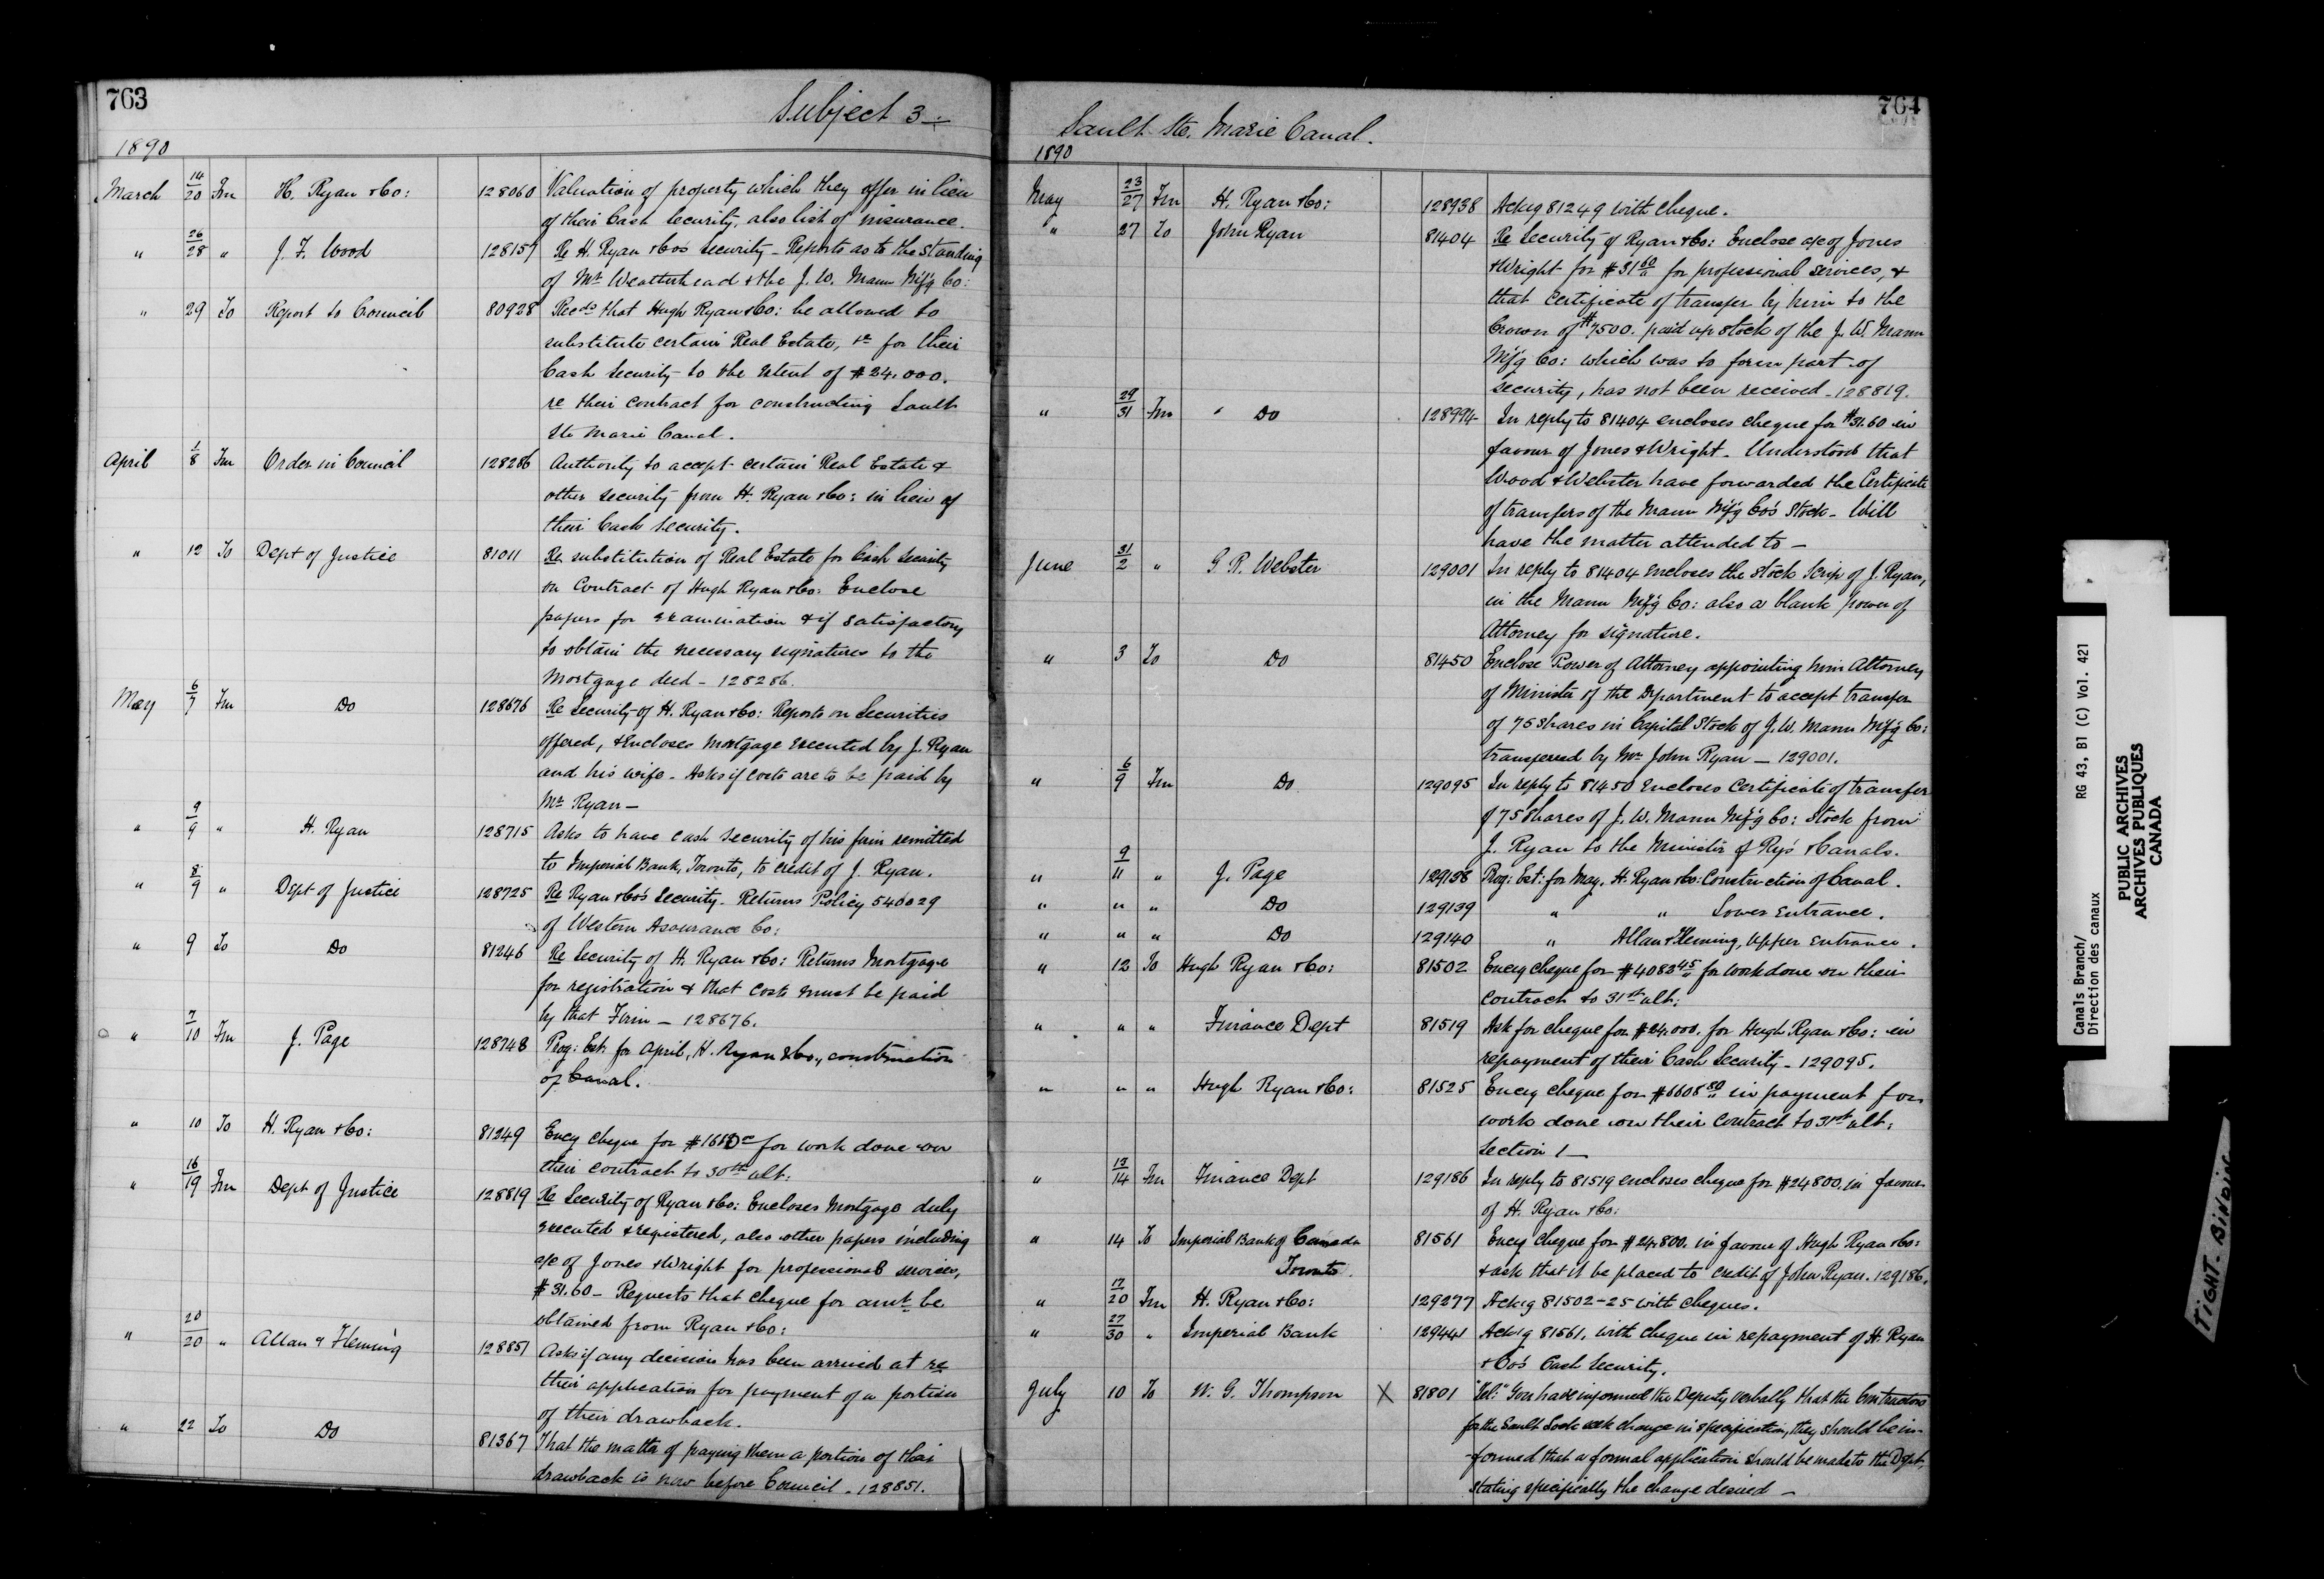 763
Subject 3 —
1890
March 14/20 Fm H. Ryan & Co: 128060 Valuation of property which they offer in lieu
of their Cash Security, also list of insurance.
" 26/28 " J. F. Wood 128157 Re H. Ryan & Co's Security - Reports as to the standing
of Mr Weatherhead & the J. W. Mann M'f'g Co:
" 29 To Report to Council 80928 Recds that Hugh Ryan & Co: be allowed to
substitute certain Real Estate, &c for their
Cash Security to the extent of $24,000.
re their contract for constructing Sault
Ste Marie Canal.
April 1/8 Fm Order in Council 128286 Authority to accept certain Real Estate &
other security from H. Ryan & Co: in lieu of
their Cash Security.
" 12 To Dept of Justice 81011 Re substitution of Real Estate for Cash Security
on Contract of Hugh Ryan & Co: Enclose
papers for examination & if satisfactory
to obtain the necessary signatures to the
Mortgage deed - 128286.
May 6/7 Fm Do 128676 Re Security of H. Ryan & Co: Reports on Securities
offered, & encloses Mortgage executed by J. Ryan
and his wife - Asks if costs are to be paid by
Mr Ryan —
" 9/9 " H. Ryan 128715 Asks to have cash security of his firm remitted
to Imperial Bank, Toronto, to credit of J. Ryan.
" 8/9 " Dept of Justice 128725 Re Ryan & Co's Security - Returns Policy 540029
of Western Assurance Co:
" 9 To Do 81246 Re Security of H. Ryan & Co: Returns Mortgage
for registration & that costs must be paid
by that Firm — 128676.
" 7/10 Fm J. Page 128748 Prog: Est: for April, H. Ryan & Co., construction
of Canal.
" 10 To H. Ryan & Co: 81249 Encg cheque for for work done on
their contract to 30th ult:
" 16/19 Fm Dept of Justice 128819 Re Security of Ryan & Co: Encloses Mortgage duly
executed & registered, also other papers including
a/c of Jones & Wright for professional services,
$31.60 - Requests that cheque for amt be
obtained from Ryan & Co:
" 20/20 " Allan & Fleming 128851 Asks if any decision has been arrived at re
their application for payment of a portion
of their drawback.
" 22 To Do 81367 That the matter of paying them a portion of their
drawback is now before Council - 128851.
764
Sault Ste. Marie Canal.
1890
May 23/27 Fm H. Ryan & Co: 128938 Ackg 81249 with cheque.
" 27 To John Ryan 81404 Re Security of Ryan & Co: Enclose a/c of Jones
& Wright for $31 60/" for professional services, &
that certificate of transfer by him to the
Crown of $7500. paid up stock of the J. W. Mann
M'f'g Co: which was to form part of
security, has not been received - 128819.
" 29/31 Fm " Do 128994 In reply to 81404 encloses cheque for $31.60 in
favour of Jones & Wright - Understood that
Wood & Webster have forwarded the Certificate
of transfers of the Mann M'f'g Co's Stock - Will
have the matter attended to —
June 31/2 " G. R. Webster 129001 In reply to 81404 encloses the Stock Scrip of J. Ryan,
in the Mann M'f'g Co: also a blank power of
Attorney for signature.
" 3 To Do 81450 Enclose Power of Attorney appointing him Attorney
of Minister of the Department to accept transfer
of 75 Shares in Capital Stock of J. W. Mann M'f'g Co:
transferred by Mr John Ryan — 129001.
" 6/9 Fm Do 129095 In reply to 81450 Encloses Certificate of transfer
of 75 Shares of J. W. Mann M'f'g Co: Stock from
J. Ryan to the Minister of Ry's & Canals.
" 9/11 " J. Page 129138 Prog: Est: for May, H. Ryan & Co: Construction of Canal.
" " " Do 129139 " " Lower Entrance.
" " " Do 129140 " Allan & Fleming, Upper Entrance.
" 12 To Hugh Ryan & Co: 81502 Encg cheque for $4083 45/" for work done on their
contract to 31st ult:
" " " Finance Dept 81519 Ask for cheque for $24,000. for Hugh Ryan & Co: in
repayment of their Cash Security - 129095.
" " " Hugh Ryan & Co: 81525 Encg cheque for $6608 80/" in payment for
work done on their contract to 31st ult:
Section 1 —
" 13/14 Fm Finance Dept 129186 In reply to 81519 encloses cheque for $24800. in favour
of H. Ryan & Co:
" 14 To Imperial Bank of Canada 81561 Encg cheque for $24,800. in favour of Hugh Ryan & Co:
Toronto. & ask that it be placed to credit of John Ryan. 129186.
" 17/20 Fm H. Ryan & Co: 129277 Ackg 81502-25 with cheques.
" 27/30 " Imperial Bank 129441 Ackg 81561, with cheque in repayment of H. Ryan
& Co's Cash Security.
July 10 To W. G. Thompson X 81801 "Tel:" You have informed the Deputy verbally that the Contractors
for the Sault Lock ask change in specification, they should be in-
-formed that a formal application should be made to the Dept,
stating specifically the change desired —
Canals Branch/
Direction des canaux
RG 43, B1 (C) Vol. 421
PUBLIC ARCHIVES
ARCHIVES PUBLIQUES
CANADA
TIGHT BINDING